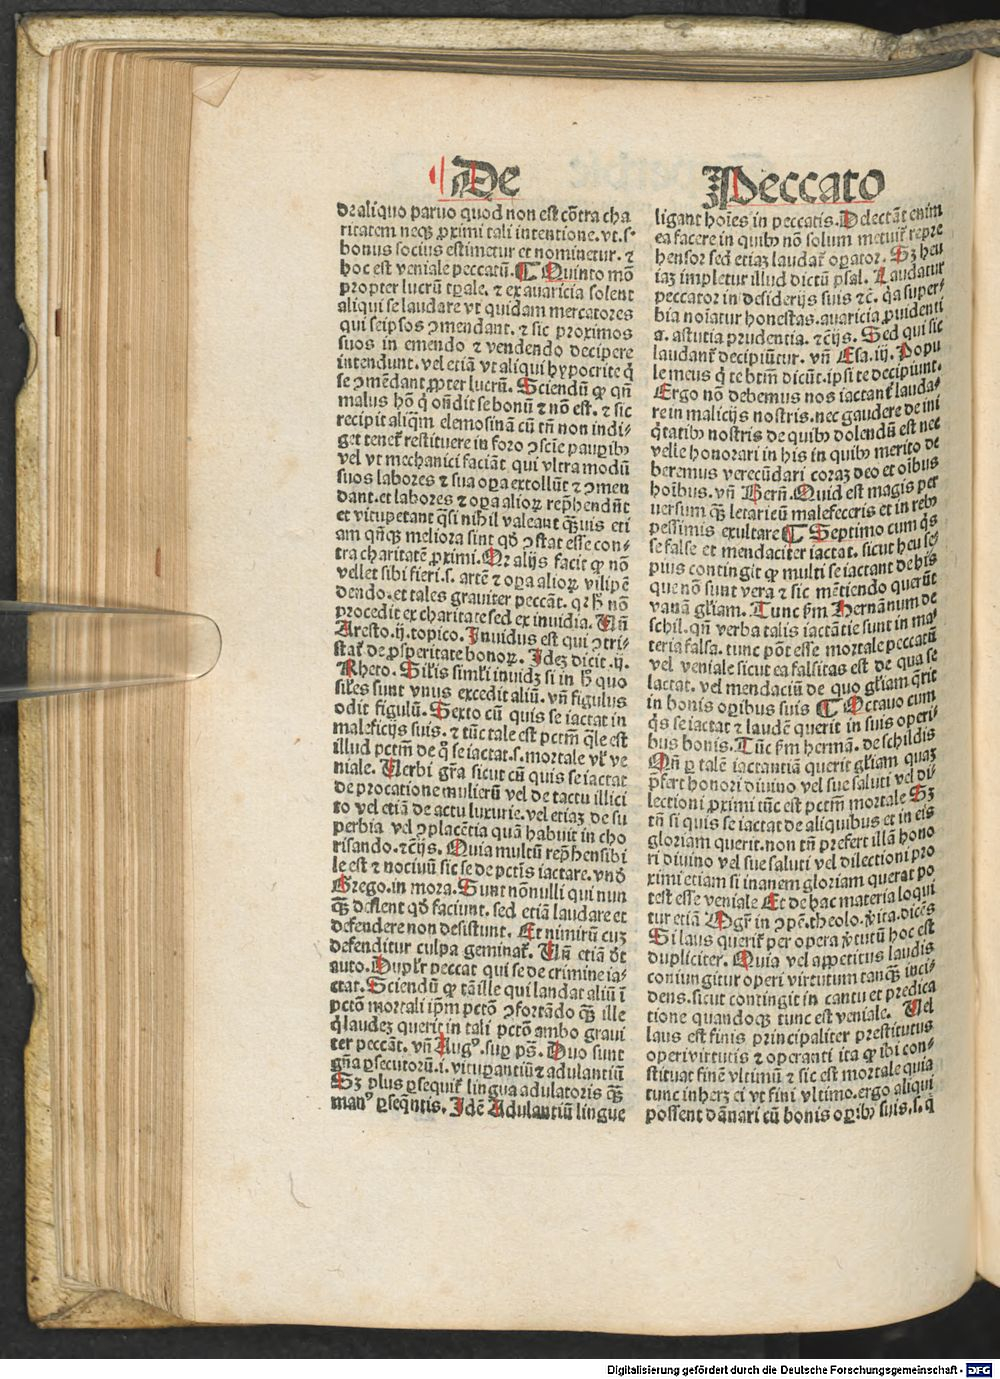 De Peccato
de aliquo paruo quod non est cōtra cha
ritatem neqꝫ ꝓximi tali intentione. vt. s.
bonus socius estimetur et nominetur. ⁊
hoc est veniale peccatū. ¶ Quinto mō
propter lucrū tꝑale. ⁊ ex auaricia solent
aliqui se laudare vt quidam mercatores
qui seipsos ↄmendant. ⁊ sic proximos
suos in emendo ⁊ vendendo decipere
intendunt. vel etiā vt aliqui hypocrite q̇
se ↄmēdant ꝓpter lucrū. Sciendū ꝙ qn̄
malus hō q̇ oñdit se bonū ⁊ nō est. ⁊ sic
recipit aliqm̄ elemosinā cū tn̄ non indi⸗
get tenet᷑ restituere in foro ↄscīe pauꝑibꝰ
vel vt mechanici faciāt qui vltra modū
suos labores ⁊ sua oꝑa extollūt ⁊ ↄmen
dant. et labores ⁊ oꝑa alioꝝ rep̄hendn̄t
et vituꝑetant q̄si nihil valeant q̄ꝫuis eti
am qn̄qꝫ meliora sint qđ ↄstat esse con⸗
tra charitatē ꝓximi. Qꝛ alijs facit ꝙ nō
vellet sibi fieri. s. artē ⁊ oꝑa alioꝝ vilipē
dendo. et tales grauiter peccāt. qꝛ h̄ nō
procedit ex charitate sed ex inuidia. Vn̄
Aresto. ij. topico. Inuidus est qui ↄtri⸗
stat᷑ de ꝓsperitate bonoꝝ. Ideꝫ dicit .ij.
Rheto. Silis simili inuidꝫ si in h̄ quo
siles sunt vnus excedit aliū. vn̄ figulus
odit figulū. Sexto cū quis se iactat in
maleficijs suis. ⁊ tūc tale est pctm̄ q̄le est
illud pctm̄ de q̊ se iactat. s. mortale vl̓ ve
niale. Verbi gr̄a sicut cū quis se iactat
de procatione mulierū vel de tactu illici
to vel etiā de actu luxurie. vel etiaꝫ de su
perbia vel ↄplacētia quā habuit in cho
risando. ⁊c̄ijs. Quia multū rep̄hensibi
le est ⁊ nociuū sic se de pctīs iactare. vnđ
Grego. in mora. Sunt nōnulli qui nun
qꝫ deflent qđ faciunt. sed etiā laudare et
defendere non desistunt. Et nimirū cuꝫ
defenditur culpa geminat᷑. Vn̄ etiā đt
auto. Duplr̄ peccat qui se de crimine ia⸗
ctat. Sciendū ꝙ tā ille qui landat aliū ī
pctō mortali ip̄m pctō ↄfortādo qꝫ ille
q̇ laudeꝫ querit in tali pctō ambo graui
ter peccāt. vn̄ Augꝰ. suꝑ pš. Duo sunt
gn̄a ꝑsecutorū. i. vituꝑantiū ⁊ adulantiū
Sꝫ plus ꝑsequit᷑ lingua adulatoris qꝫ
manꝰ ꝑseq̄ntis. Idē Adulantiū lingue
ligant hoīes in peccatis. Delectāt enim
ea facere in quibꝰ nō solum metuit᷑ repre
hensor sed etiaꝫ laudat᷑ oꝑator. Sꝫ heu
iaꝫ impletur illud dictū psal. Laudatur
peccator in desiderijs suis ⁊c̄. q̓a super⸗
bia noīatur honestas. auaricia ꝓuidenti
a. astutia prudentia. ⁊c̄ijs. Sed qui sic
laudant᷑ decipiūtur. vn̄ Esa. iij. Popu
le meus q̇ te btm̄ dicūt. ipsi te decipiunt.
Ergo nō debemus nos iactant᷑ lauda⸗
re in malicijs nostris. nec gaudere de ini
q̇tatibꝰ nostris de quibꝰ dolendū est nec
velle honorari in his in quibꝰ merito de
beremus verecūdari coraꝫ deo et oībus
hoībus. vn̄ Bern̄. Quid est magis per
uersum qꝫ letari cū malefeceris et in rebꝰ
pessimis exultare ¶ Septimo cum q̇s
se false et mendaciter iactat. sicut heu se⸗
pius contingit ꝙ multi se iactant de his
que nō sunt vera ⁊ sic mētiendo querūt
vanā gl̄iam. Tunc ẜm Hernānum de
schil. qn̄ verba talis iactātie sunt in ma⸗
teria falsa. tunc pōt esse mortale peccatū
vel veniale sicut ea falsitas est de qua se
iactat. vel mendaciū de quo gl̄iam q̄rit
in bonis oꝑibus suis ¶ Octauo cum
q̇s se iactat ⁊ laudē querit in suis operi⸗
bus bonis. Tūc ẜm hermā. de schildis
Qn̄ ꝑ talē iactantiā querit gl̄iam quaꝫ
p̄fert honori diuino vel sue saluti vel di⸗
lectioni ꝓximi tūc est pctm̄ mortale Sꝫ
tn̄ si quis se iactat de aliquibus et in eis
gloriam querit. non tn̄ prefert illā hono
ri diuino vel sue saluti vel dilectioni pro
ximi etiam si inanem gloriam querat po
test esse veniale Et de hac materia loqui
tur etiā Mgr̄ in ↄpē. theolo. v̓ita. dicēs
Si laus querit᷑ per opera v̓tutū hoc est
dupliciter. Quia vel appetitus laudis
coniungitur operi virtutum tanqꝫ inci⸗
dens. sicut contingit in cantu et predica
tione quandoqꝫ tunc est veniale. Vel
laus est finis principaliter prestitutus
operi virtutis ⁊ operanti ita ꝙ ibi con⸗
stituat finē vltimū ⁊ sic est mortale quia
tunc inherꝫ ei vt fini vltimo. ergo aliqui
possent dānari cū bonis oꝑibꝰ suis. s. q̇
Digitalisierung gefördert durch die Deutsche Forschungsgemeinschaft - DFG